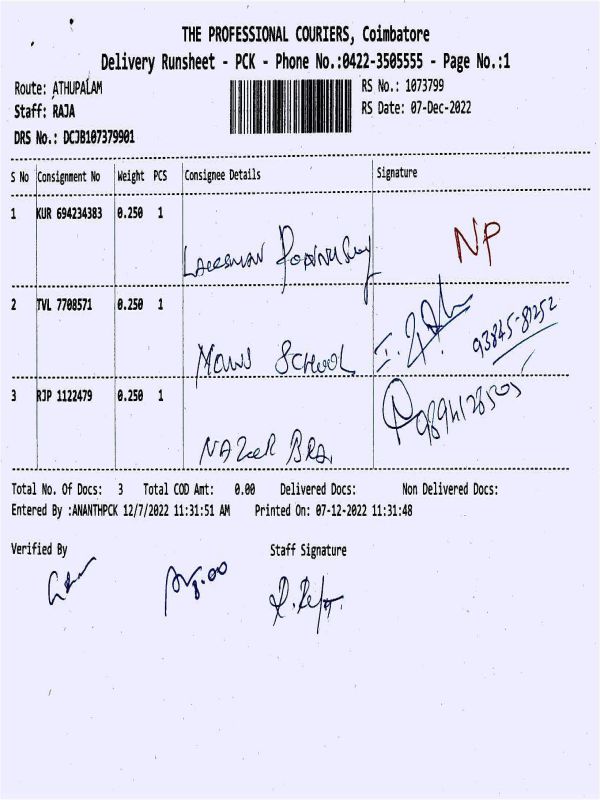 THE PROFESSIONAL COURIERS, Coimbatore
Delivery Runsheet - PCK - Phone No.:0422-3505555 - Page No.:1
Route: ATHUPALAM
RS No.: 1073799
Staff: RAJA
RS Date: 07-Dec-2022
DRS No.: DCJB107379901
S No Consignment No Weight PCS Consignee Details Signature
1 KUR 694234383 0.250 1
NP
2 TVL 7708571 0.250 1
93845-81252
SCHOOL
3 RJP 1122479 0.250 1
9894128505
NAZEER
Total No. Of Docs: 3 Total COD Amt: 0.00 Delivered Docs: Non Delivered Docs:
Entered By :ANANTHPCK 12/7/2022 11:31:51 AM Printed On: 07-12-2022 11:31:48
Verified By Staff Signature